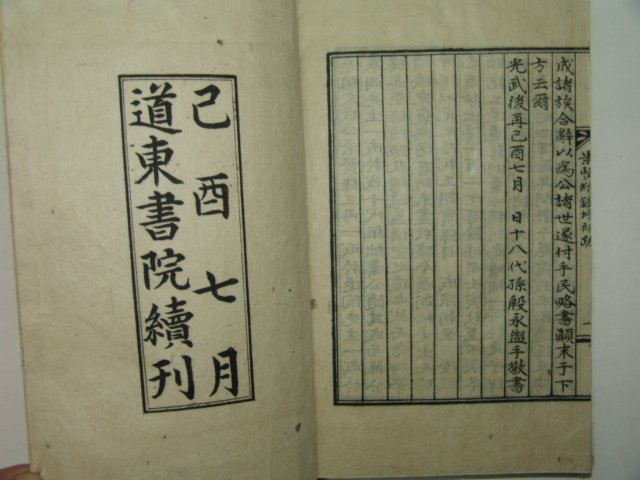 成諸族合辭以爲公諸世遂付手民略書顚末于下
方云爾
光武後再己酉七月　日十八代孫殷永盥手敬書
己酉七月
道東書院續刊